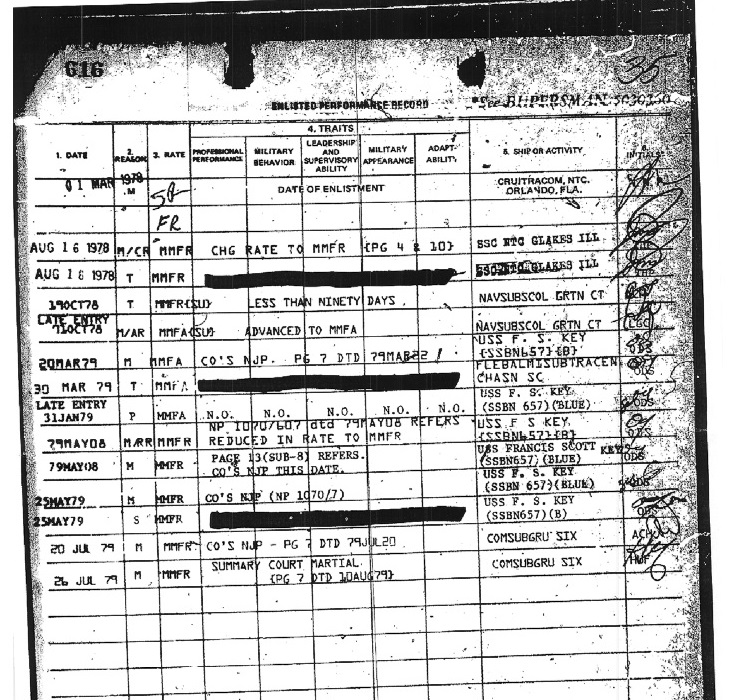 616
35
ENLISTED PERFORMANCE RECORD
*See BUPERSMAN 5030350
1. DATE 2. REASON 3. RATE 4. TRAITS 5. SHIP OR ACTIVITY 6. INITIALS
PROFESSIONAL PERFORMANCE MILITARY BEHAVIOR LEADERSHIP AND SUPERVISORY ABILITY MILITARY APPEARANCE ADAPT-ABILITY
01 MAR 1978 M SR DATE OF ENLISTMENT CRUITRACOM, NTC.
ORLANDO, FLA.
FR
AUG 16 1978 M/CR MMFR CHG RATE TO MMFR (PG 4 & 10) SSC NTC GLAKES ILL
AUG 18 1978 T MMFR SSC NTC GLAKES ILL
19OCT78 T MMFR(SU) LESS THAN NINETY DAYS. NAVSUBSCOL GRTN CT
LATE ENTRY
11OCT78 M/AR MMFA(SU) ADVANCED TO MMFA NAVSUBSCOL GRTN CT LGC
20MAR79 M MMFA CO'S NJP. PG 7 DTD 79MAR22 USS F. S. KEY
(SSBN657)(B) ODS
30 MAR 79 T MMFA FLEBALMISUBTRACEN
CHASN SC ODS
LATE ENTRY
31JAN79 P MMFA N.O. N.O. N.O. N.O. N.O. USS F. S. KEY
(SSBN 657)(BLUE) ODS
79MAY08 M/RR MMFR NP 1070/607 dtd 79MAY08 REFERS
REDUCED IN RATE TO MMFR USS F S KEY
(SSBN657)(B) ODS
79MAY08 MMFR PAGE 13(SUB-8) REFERS.
CO'S NJP THIS DATE. USS FRANCIS SCOTT KEY
(SSBN657)(BLUE) ODS
25MAY79 M MMFR CO'S NJP (NP 1070/7) USS F. S. KEY
(SSBN 657)(BLUE) ODS
25MAY79 S MMFR USS F. S. KEY
(SSBN657)(B) ODS
20 JUL 79 M MMFR CO'S NJP - PG 7 DTD 79JUL20 COMSUBGRU SIX
26 JUL 79 M MMFR SUMMARY COURT MARTIAL.
(PG 7 DTD 10AUG79) COMSUBGRU SIX